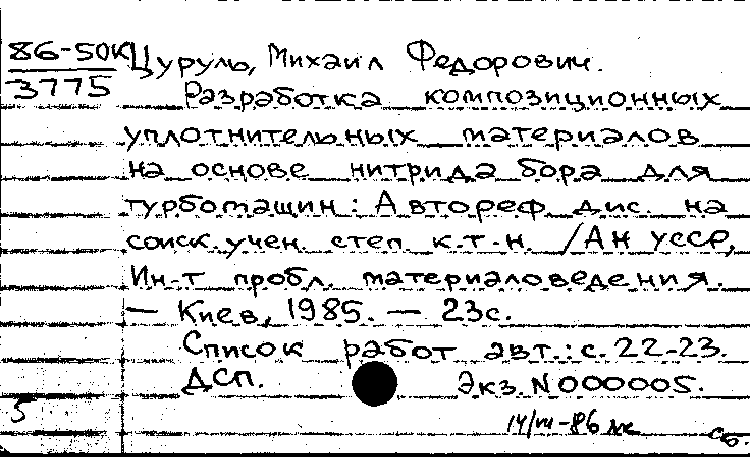 86-50К Цуруль, Михаил Федорович.
3775
Разработка композиционных
уплотнительных материалов
на основе нитрида бора для
турбомашин: Автореф. дис. на
соиск. учен. степ. к.т.н. /АН УССР,
Ин-т пробл. материаловедения.
— Киев, 1985. — 23с.
Список работ авт.: с. 22-23.
ДСП. Экз. N000005.
5
14/III-86